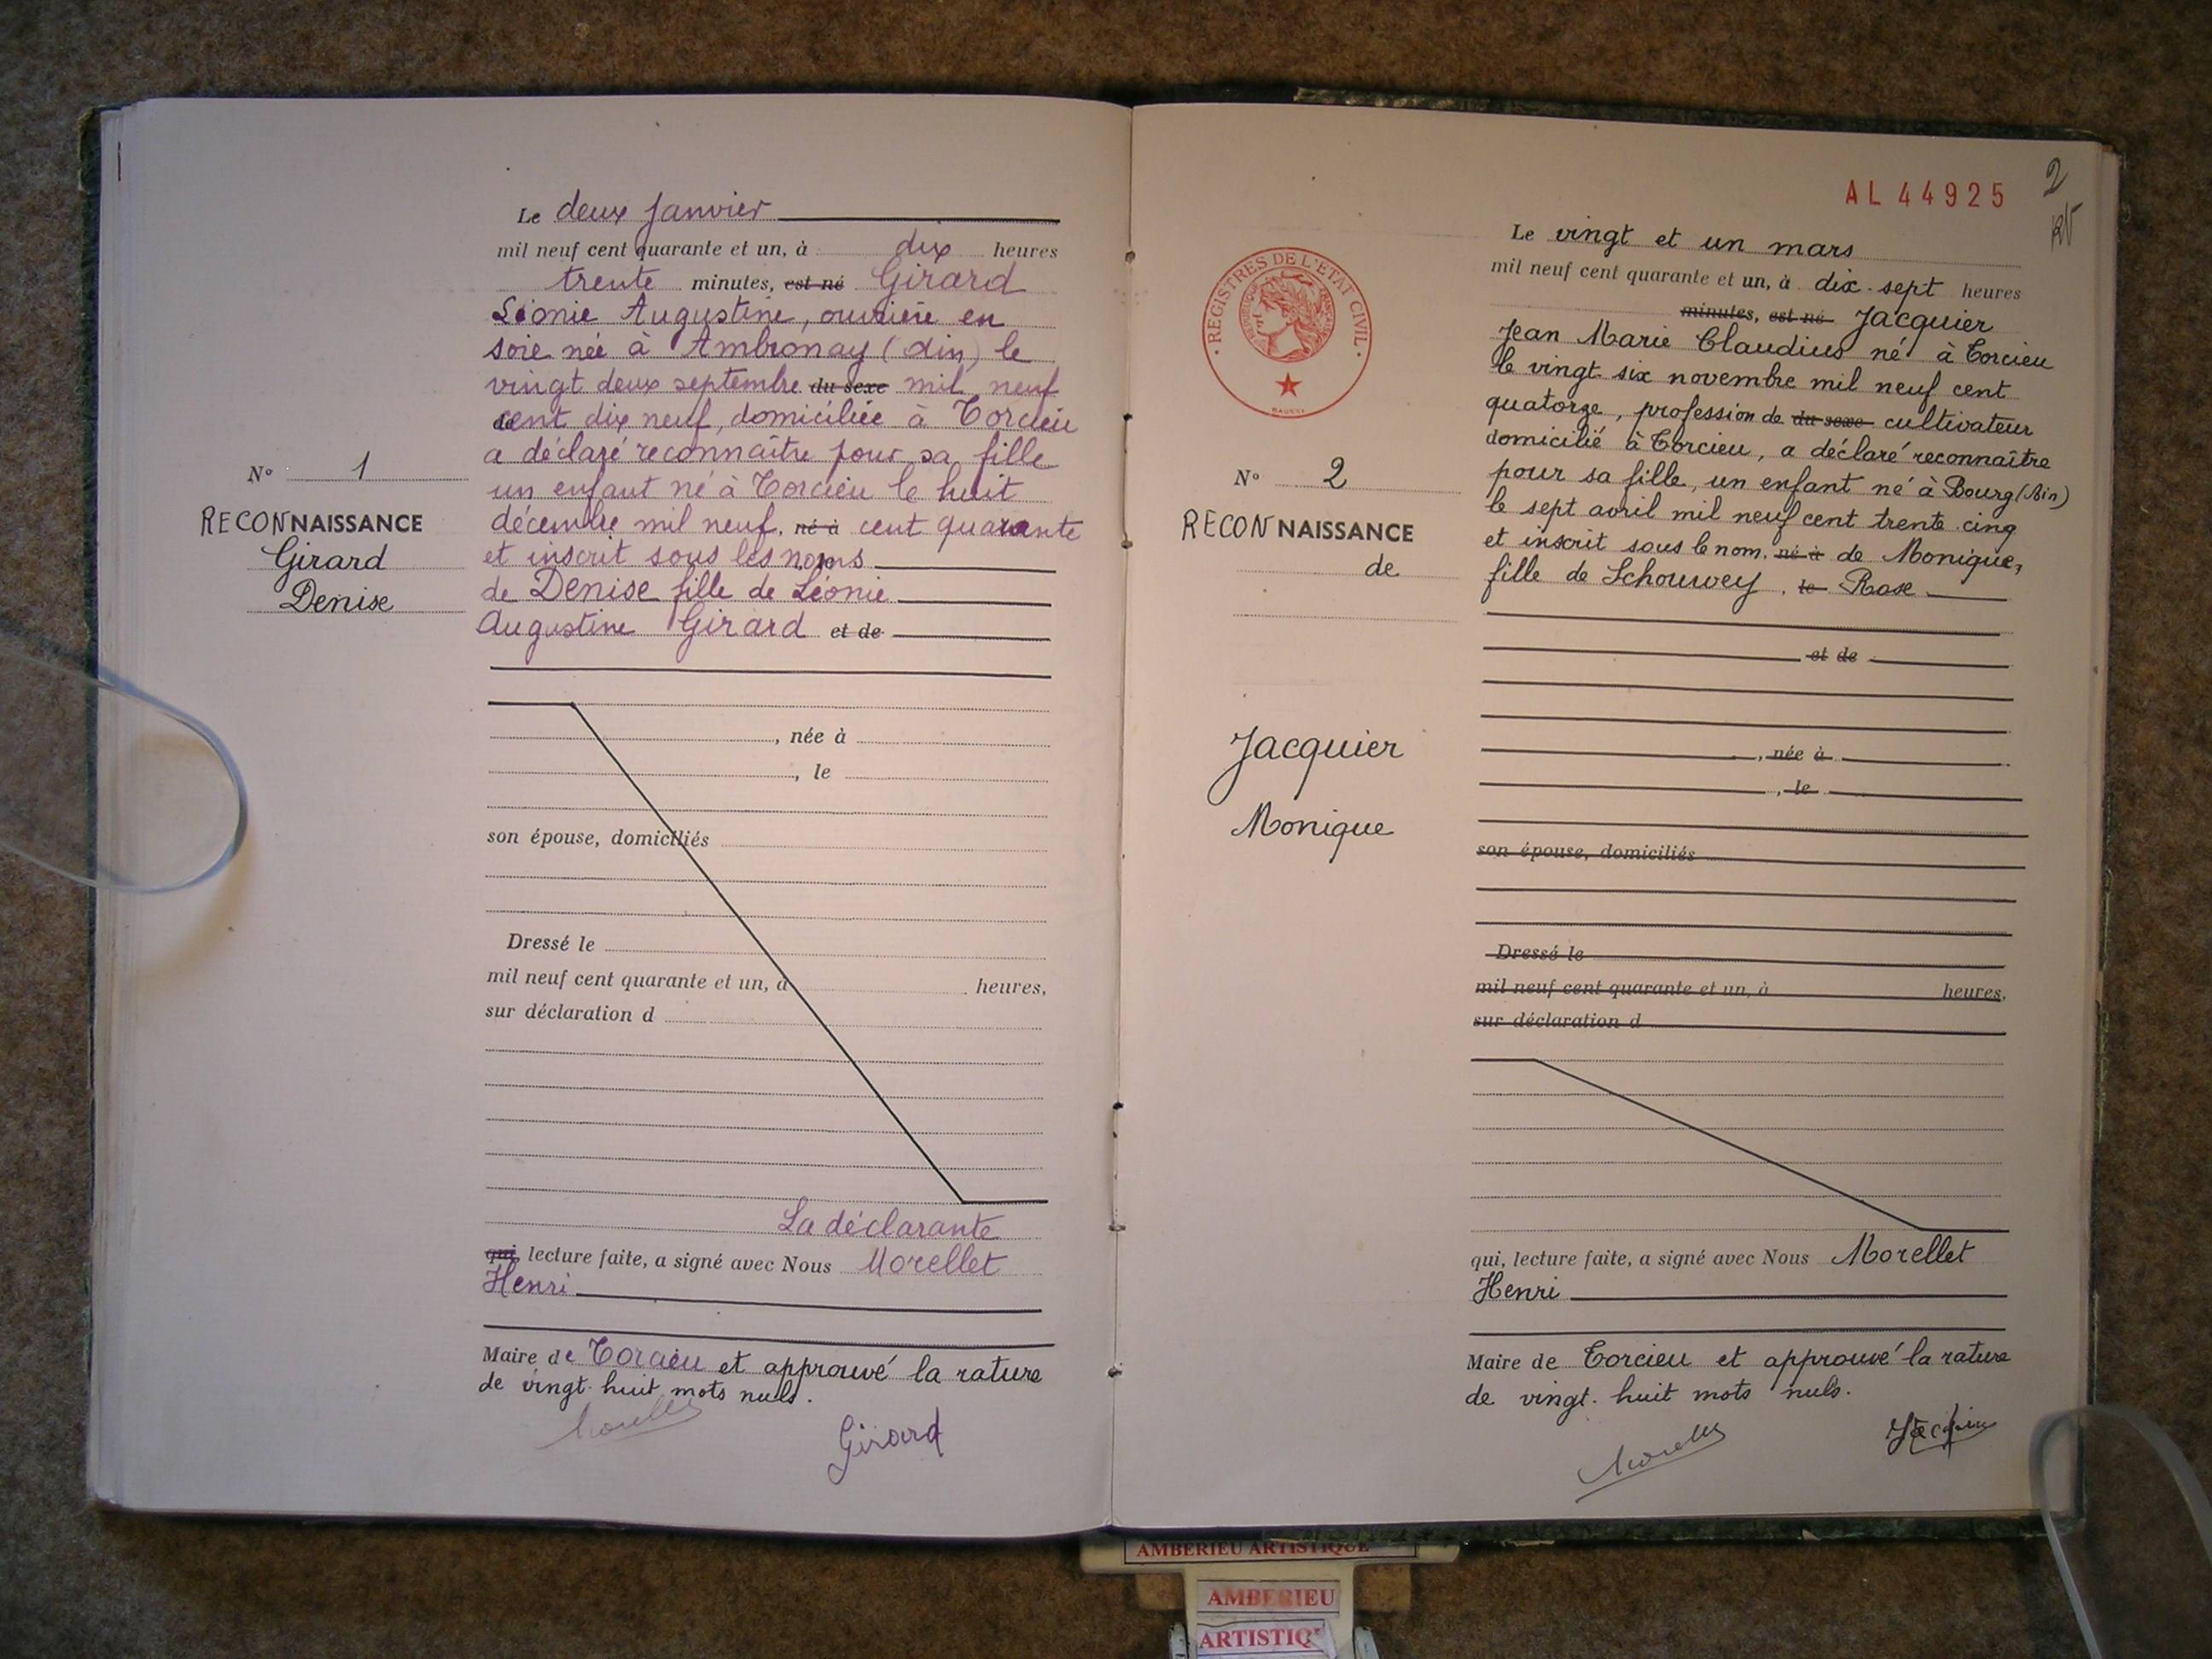 Le deux janvier
mil neuf cent quarante et un, à dix heures
trente minutes, est né Girard
Léonie Augustine, ouvrière en
soie née à Ambronay (Ain) le
vingt deux septembre du sexe mil neuf
cent dix neuf, domiciliée à Torcieu
a déclaré reconnaître pour sa fille
un enfant né à Torcieu le huit
décembre mil neuf, né à cent quarante
et inscrit sous les noms
de Denise fille de Léonie
Augustine Girard et de
N° 1
RECONNAISSANCE
Girard
Denise
, née à
, le
son épouse, domiciliés
Dressé le
mil neuf cent quarante et un, à heures,
sur déclaration d
La déclarante
qui, lecture faite, a signé avec Nous Morellet
Henri
Maire de Torcieu et approuvé la rature
de vingt-huit mots nuls.
Girard
AL 44925
2
REGISTRES DE L'ETAT CIVIL
Le vingt et un mars
mil neuf cent quarante et un, à dix-sept heures
minutes, est né Jacquier
Jean Marie Claudius né à Torcieu
le vingt six novembre mil neuf cent
quatorze, profession de du sexe cultivateur
domicilié à Torcieu, a déclaré reconnaître
pour sa fille, un enfant né à Bourg (Ain)
le sept avril mil neuf cent trente cinq
et inscrit sous le nom, né à de Monique,
fille de Schouwey, le Rose
N° 2
RECONNAISSANCE
de
Jacquier
Monique
et de
, née à
, le
son épouse, domiciliés
Dressé le
mil neuf cent quarante et un, à heures,
sur déclaration d
qui, lecture faite, a signé avec Nous Morellet
Henri
Maire de Torcieu et approuvé la rature
de vingt-huit mots nuls.
AMBERIEU ARTISTIQUE
AMBERIEU
ARTISTIQ